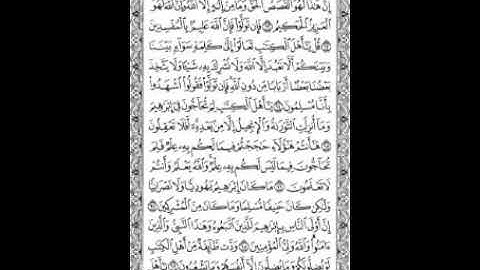 إِنَّ هَٰذَا لَهُوَ ٱلْقَصَصُ ٱلْحَقُّ وَمَا مِنْ إِلَٰهٍ إِلَّا ٱللَّهُ وَإِنَّ ٱللَّهَ لَهُوَ
ٱلْعَزِيزُ ٱلْحَكِيمُ ٦٢ فَإِن تَوَلَّوْا۟ فَإِنَّ ٱللَّهَ عَلِيمٌۢ بِٱلْمُفْسِدِينَ
٦٣ قُلْ يَٰٓأَهْلَ ٱلْكِتَٰبِ تَعَالَوْا۟ إِلَىٰ كَلِمَةٍ سَوَآءٍۭ بَيْنَنَا
وَبَيْنَكُمْ أَلَّا نَعْبُدَ إِلَّا ٱللَّهَ وَلَا نُشْرِكَ بِهِۦ شَيْـًٔا وَلَا يَتَّخِذَ
بَعْضُنَا بَعْضًا أَرْبَابًا مِّن دُونِ ٱللَّهِ فَإِن تَوَلَّوْا۟ فَقُولُوا۟ ٱشْهَدُوا۟
بِأَنَّا مُسْلِمُونَ ٦٤ يَٰٓأَهْلَ ٱلْكِتَٰبِ لِمَ تُحَآجُّونَ فِىٓ إِبْرَٰهِيمَ
وَمَآ أُنزِلَتِ ٱلتَّوْرَىٰةُ وَٱلْإِنجِيلُ إِلَّا مِنۢ بَعْدِهِۦٓ أَفَلَا تَعْقِلُونَ
٦٥ هَٰٓأَنتُمْ هَٰٓؤُلَآءِ حَٰجَجْتُمْ فِيمَا لَكُم بِهِۦ عِلْمٌ فَلِمَ
تُحَآجُّونَ فِيمَا لَيْسَ لَكُم بِهِۦ عِلْمٌ وَٱللَّهُ يَعْلَمُ وَأَنتُمْ
لَا تَعْلَمُونَ ٦٦ مَا كَانَ إِبْرَٰهِيمُ يَهُودِيًّا وَلَا نَصْرَانِيًّا
وَلَٰكِن كَانَ حَنِيفًا مُّسْلِمًا وَمَا كَانَ مِنَ ٱلْمُشْرِكِينَ ٦٧
إِنَّ أَوْلَى ٱلنَّاسِ بِإِبْرَٰهِيمَ لَلَّذِينَ ٱتَّبَعُوهُ وَهَٰذَا ٱلنَّبِىُّ وَٱلَّذِينَ
ءَامَنُوا۟ وَٱللَّهُ وَلِىُّ ٱلْمُؤْمِنِينَ ٦٨ وَدَّت طَّآئِفَةٌ مِّنْ أَهْلِ ٱلْكِتَٰبِ
لَوْ يُضِلُّونَكُمْ وَمَا يُضِلُّونَ إِلَّآ أَنفُسَهُمْ وَمَا يَشْعُرُونَ ٦٩